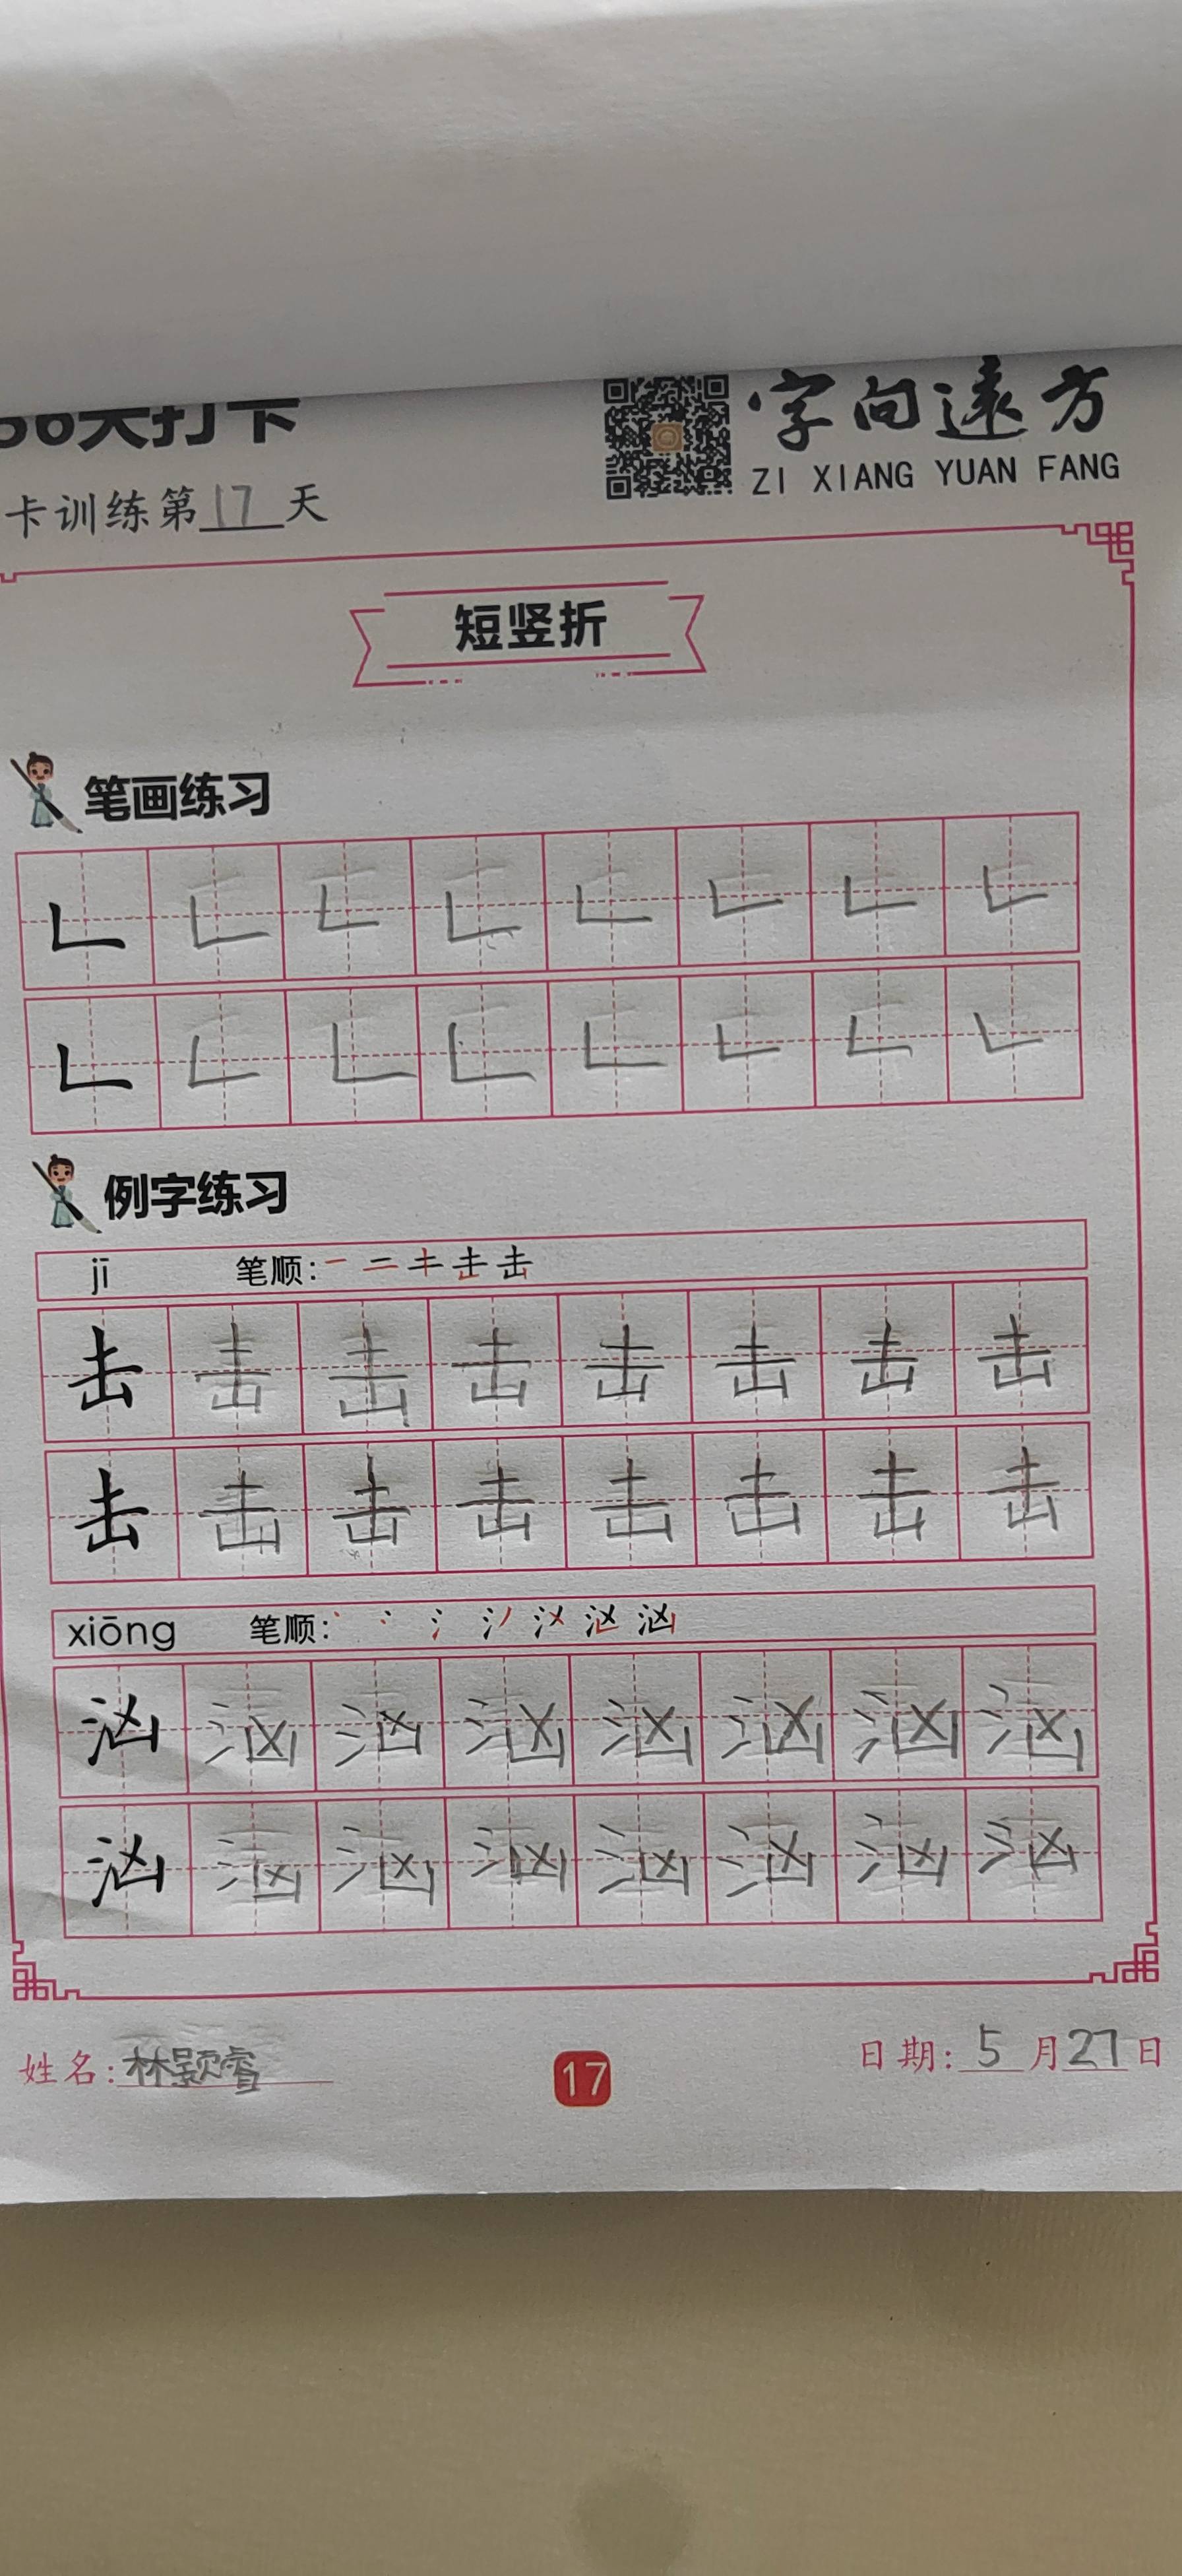 字向遠方
ZI XIANG YUAN FANG
36天打卡
卡训练第17天
短竖折
笔画练习
例字练习
jī 笔顺:
击 击 击 击 击 击 击 击
击 击 击 击 击 击 击 击
xiōng 笔顺:
汹 汹 汹 汹 汹 汹 汹 汹
汹 汹 汹 汹 汹 汹 汹 汹
姓名:林颢睿
17
日期:5月27日